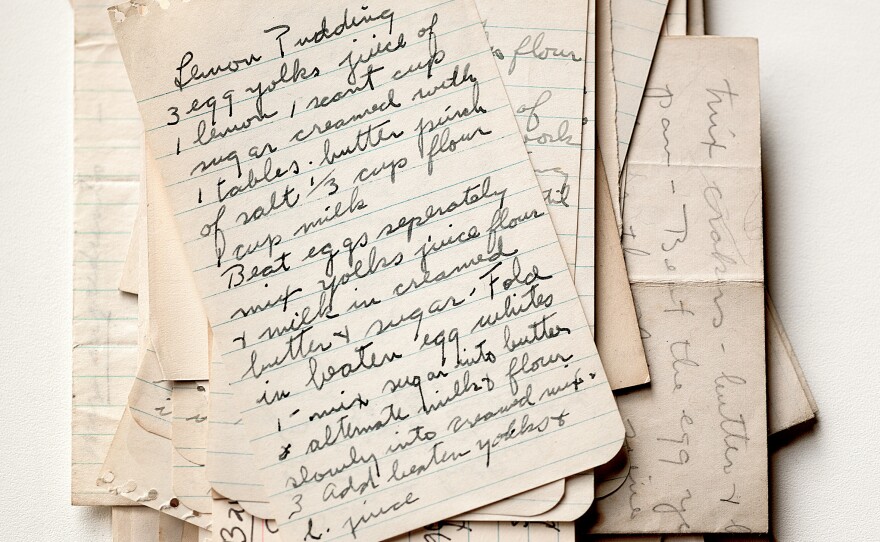 Lemon Pudding
3 egg yolks juice of
1 lemon 1 scant cup
sugar creamed with
1 tables. butter pinch
of salt 1/3 cup flour
1 cup milk
Beat eggs seperately
mix yolks juice flour
+ milk in creamed
butter + sugar - Fold
in beaten egg whites
1 - mix sugar into butter
2 alternate milk + flour
slowly into creamed mix-
3 add beaten yolks +
l. juice
flour
of
til
mix - butter +
pan - Beat the egg